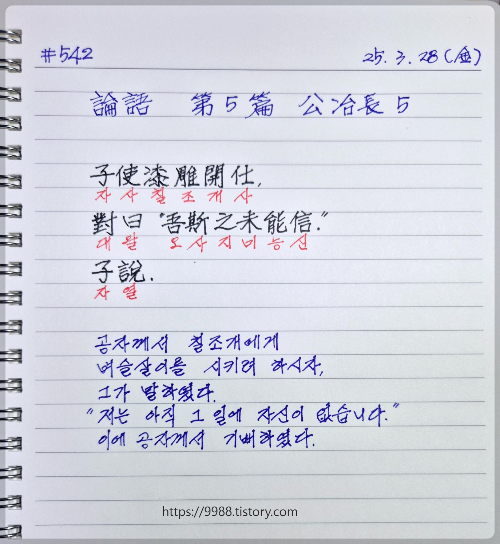 #542
25. 3. 28 (金)
論語 第5篇 公冶長 5
子使漆雕開仕,
자사칠조개사
對曰 "吾斯之未能信."
대왈 오사지미능신
子說.
자열
공자께서 칠조개에게
벼슬살이를 시키려 하시자,
그가 말하였다.
"저는 아직 그 일에 자신이 없습니다."
이에 공자께서 기뻐하였다.
https://9988.tistory.com